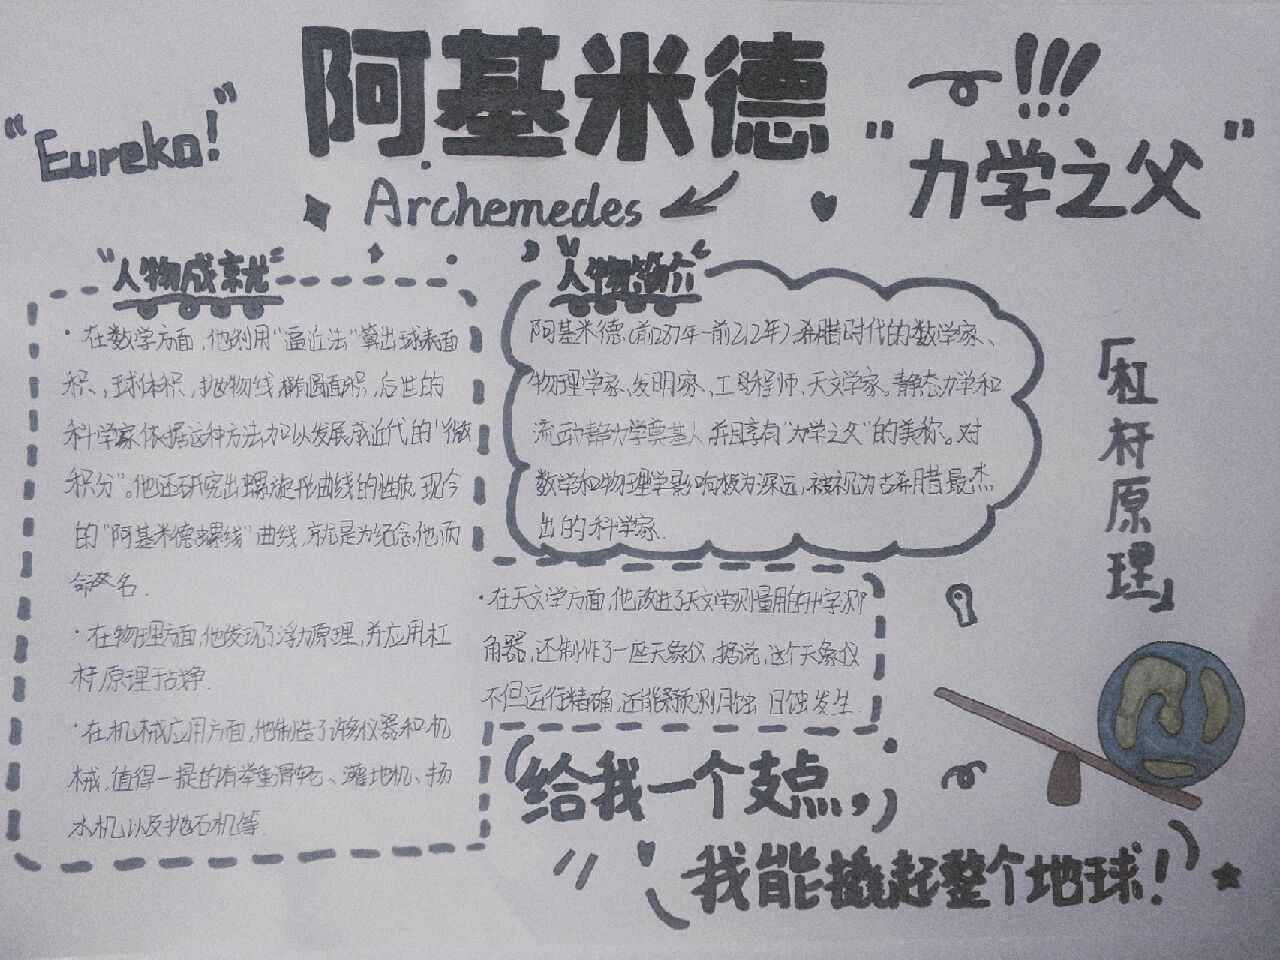 阿基米德
"Eureka!"
!!!
"力学之父"
Archemedes
"人物成就"
·在数学方面,他利用"逼近法"算出球表面
积、球体积、抛物线,椭圆面积,后世的
科学家依据这种方法加以发展成近代的"微
积分"。他还研究出螺旋形曲线的性质,现今
的"阿基米德螺线"曲线,就是为纪念他而
命名.
·在物理方面,他发现了浮力原理,并应用杠
杆原理于战争.
·在机械应用方面,他制造了许多仪器和机
械,值得一提的有举重滑轮、灌地机、扬
水机以及抛石机等.
"人物简介"
阿基米德(前287年-前212年),希腊时代的数学家、
物理学家、发明家、工程师、天文学家。静态力学和
流动静力学奠基人,并且享有"力学之父"的美称。对
数学和物理学影响极为深远,被视为古希腊最杰
出的科学家.
·在天文学方面,他改进了天文学测量用的十字测
角器,还制作了一座天象仪,据说,这个天象仪
不但运行精确,还能预测月蚀 日蚀发生.
「杠杆原理」
(给我一个支点,)
(我能撬起整个地球!)